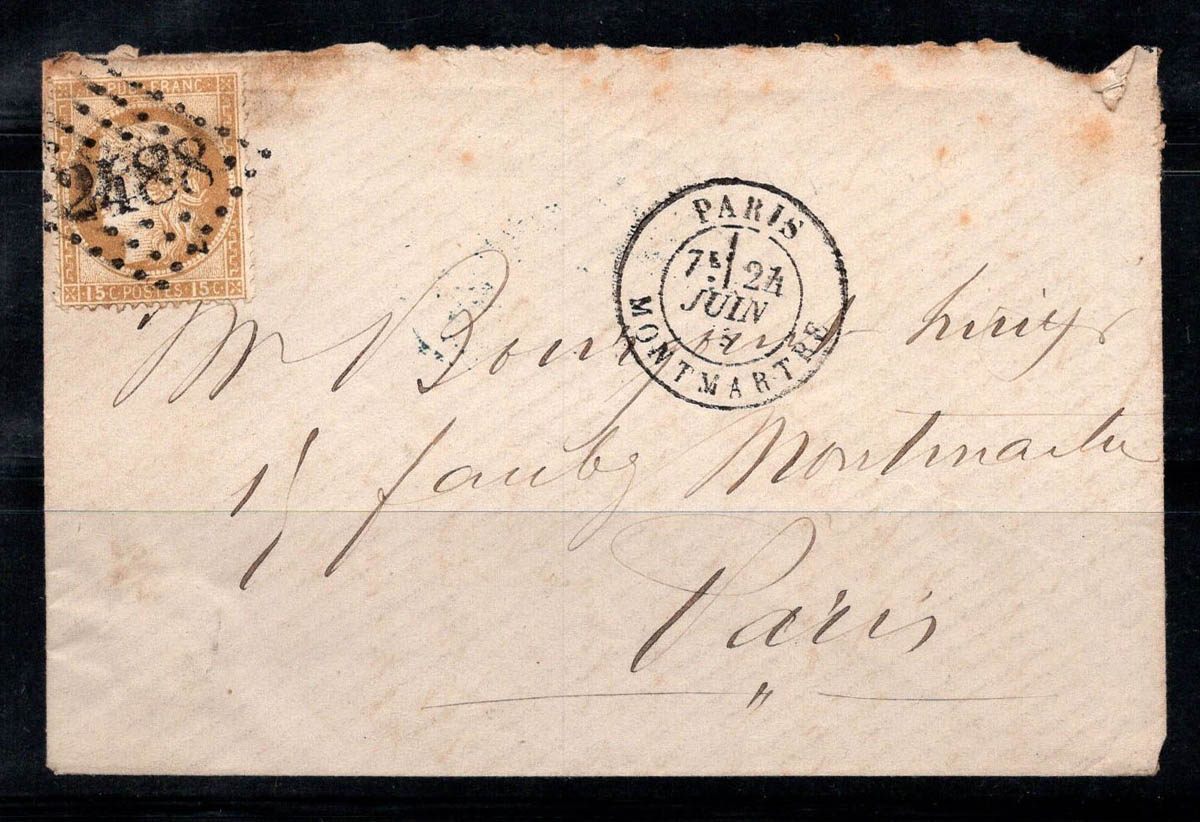 PUB FRANC
2488
15 C. POSTES 15 C.
PARIS
7E 24
JUIN
MONTMARTRE
Mr
15 faubg Montmartre
Paris